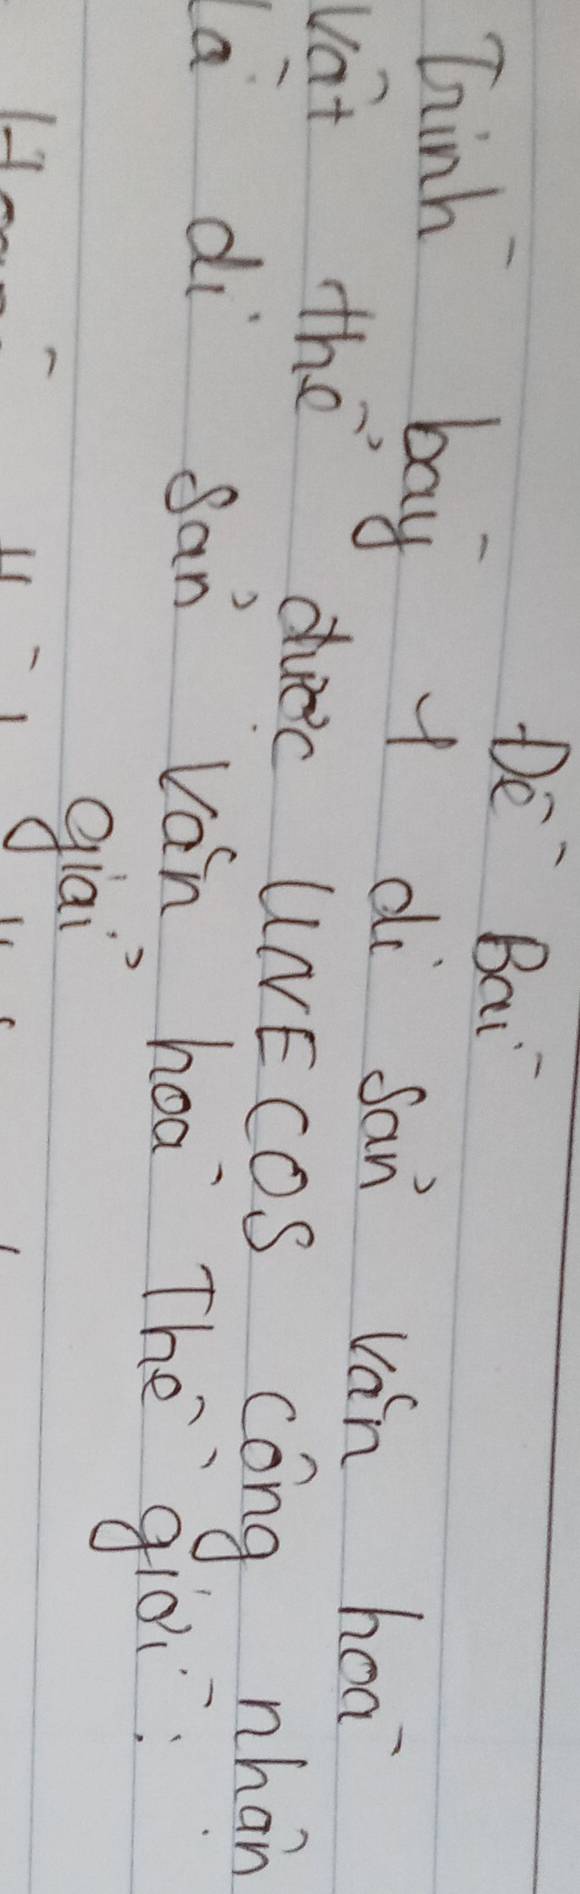 Đề Bài
Trình bày 1 di sản văn hoá
vật thể được UNECOS công nhận
là di sản văn hoá Thế giới.
giải